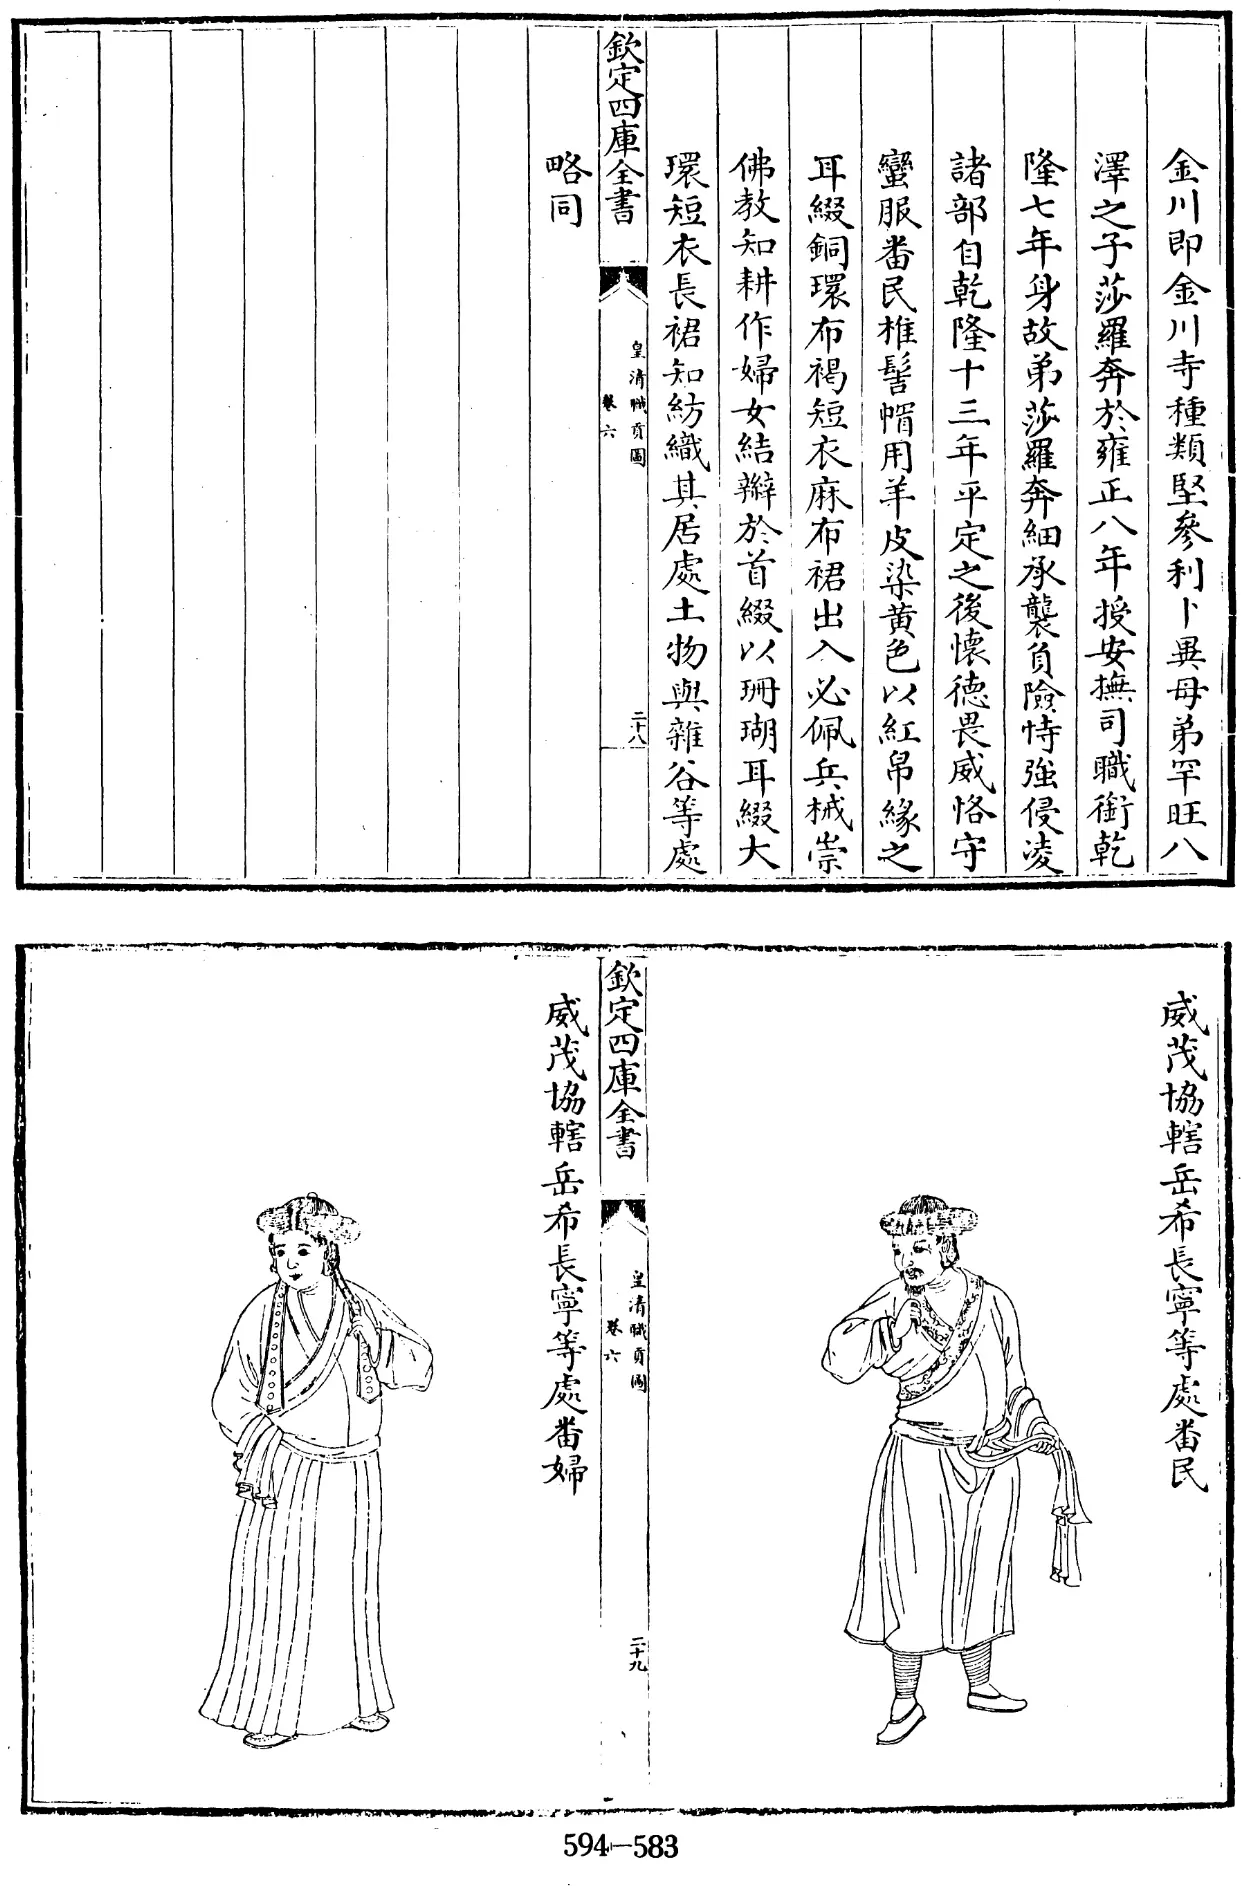 金川即金川寺種類堅參利卜異母弟罕旺八
澤之子莎羅奔於雍正八年授安撫司職銜乾
隆七年身故弟莎羅奔細承襲負險恃強侵凌
諸部自乾隆十三年平定之後懷德畏威恪守
蠻服番民椎髻帽用羊皮染黄色以紅帛緣之
耳綴銅環布褐短衣麻布裙出入必佩兵械崇
佛教知耕作婦女結辮於首綴以珊瑚耳綴大
環短衣長裙知紡織其居處土物與雜谷等處
欽定四庫全書
皇清職貢圖
卷六
二十八
略同
威茂協轄岳希長寧等處番民
欽定四庫全書
皇清職貢圖
卷六
二十九
威茂協轄岳希長寧等處番婦
594—583